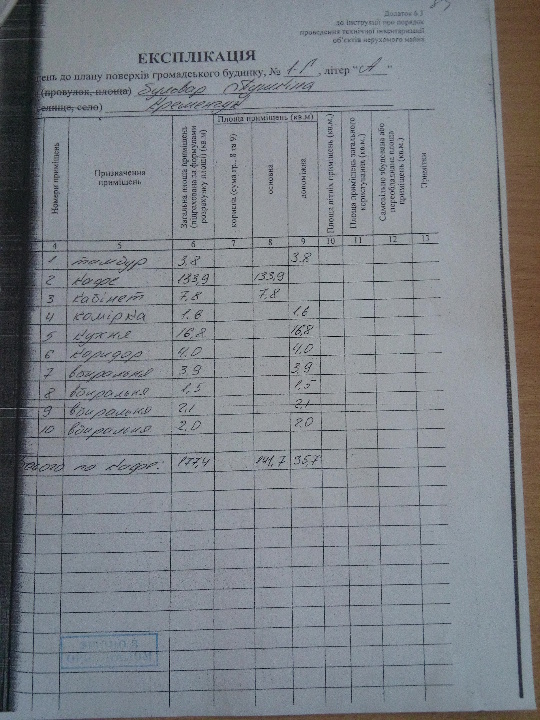 Додаток 6.1
до Інструкції про порядок
проведення технічної інвентаризації
об'єктів нерухомого майна
ЕКСПЛІКАЦІЯ
ень до плану поверхів громадського будинку, № 1-Г, літер "А"
(провулок, площа) бульвар Пушкіна
селище, село) Кременчук
Номери приміщень
Призначення приміщень
Загальна площа приміщень (підрахована за формулами розрахунку площі) (кв.м)
Площа приміщень (кв.м)
корисна (сума гр. 8 та 9)
основна
допоміжна
Площа літніх приміщень (кв.м.)
Площа приміщень загального користування (кв.м.)
Самовільно збудована або переобладнана площа приміщень (кв.м.)
Примітки
4 5 6 7 8 9 10 11 12 13
1 тамбур 3,8 3,8
2 кафе 133,9 133,9
3 кабінет 7,8 7,8
4 комірка 1.6 1.6
5 кухня 16,8 16,8
6 коридор 4,0 4,0
7 вбиральня 3,9 3,9
8 вбиральня 1,5 1,5
9 вбиральня 2,1 2,1
10 вбиральня 2,0 2,0
ього по кафе: 177,4 141,7 35,7